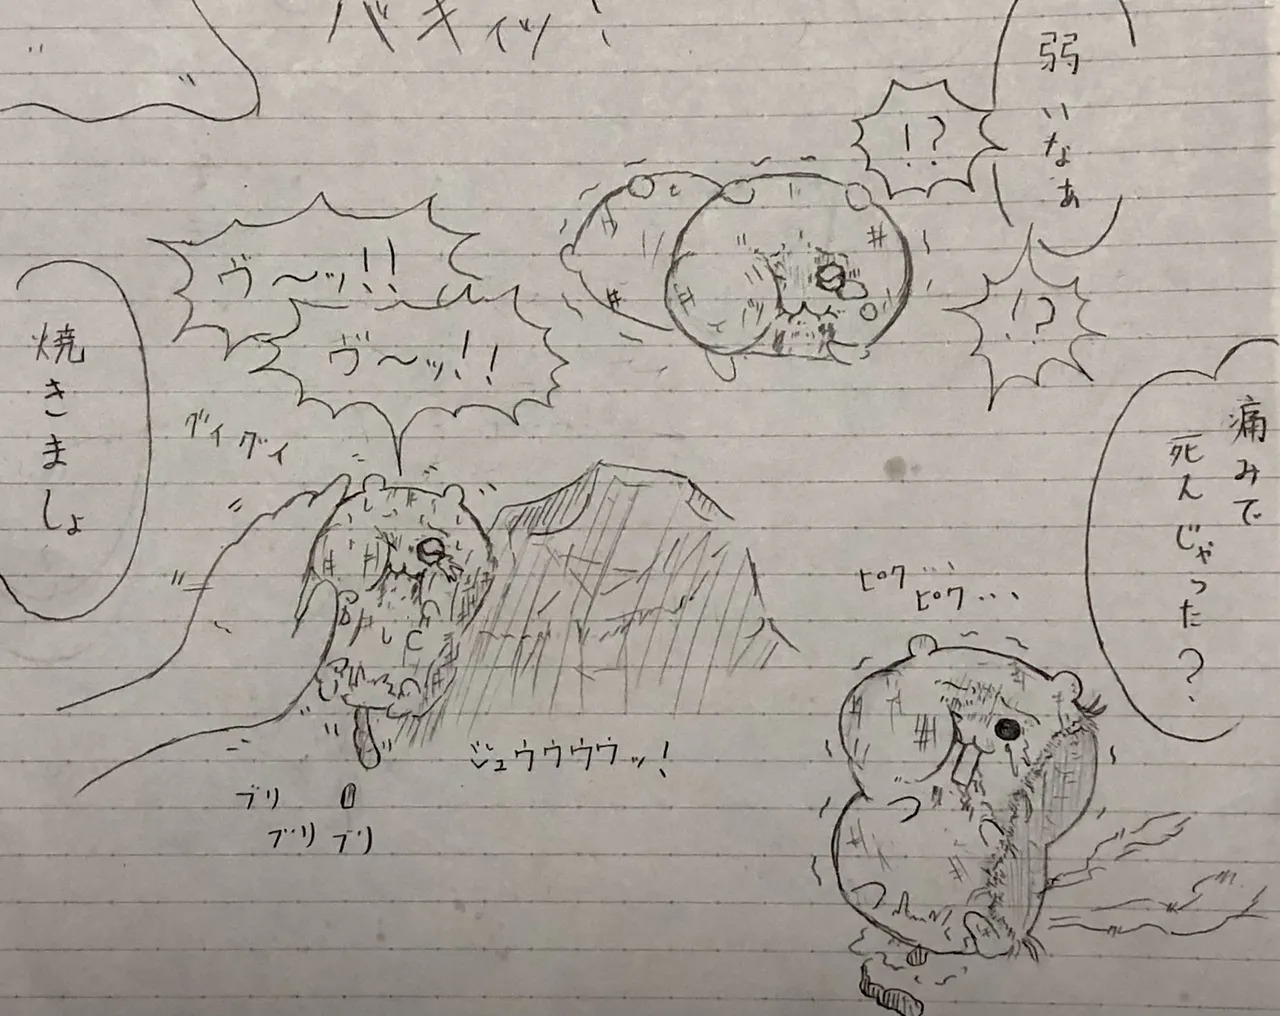 バキィッ!
弱いなぁ
!?
!?
ヴ〜ッ!!
ヴ〜ッ!!
焼きましょ
グイグイ
ジュウウウウッ!
ブリ
ブリブリ
痛みで
死んじゃった?
ピク...
ピク...